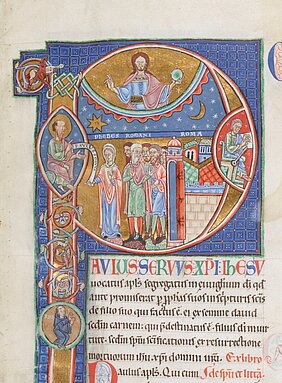 PHEBES ROMANI ROMA
AVLVS SERVVS XPI IHESV
vocatus apls segregatus in euuglium di qd
ante promiserat p pphas suos in scripturis scis
de filio suo qui factus e ei ex semine dauid
scdm carnem. qui pdestinatus e filius di in uirtu
te. scdm spm scificationis ex resurrectione
mortuorum ihu xpi domini nri. Ex libro
Paulus apls. Qui cum de spu et littera